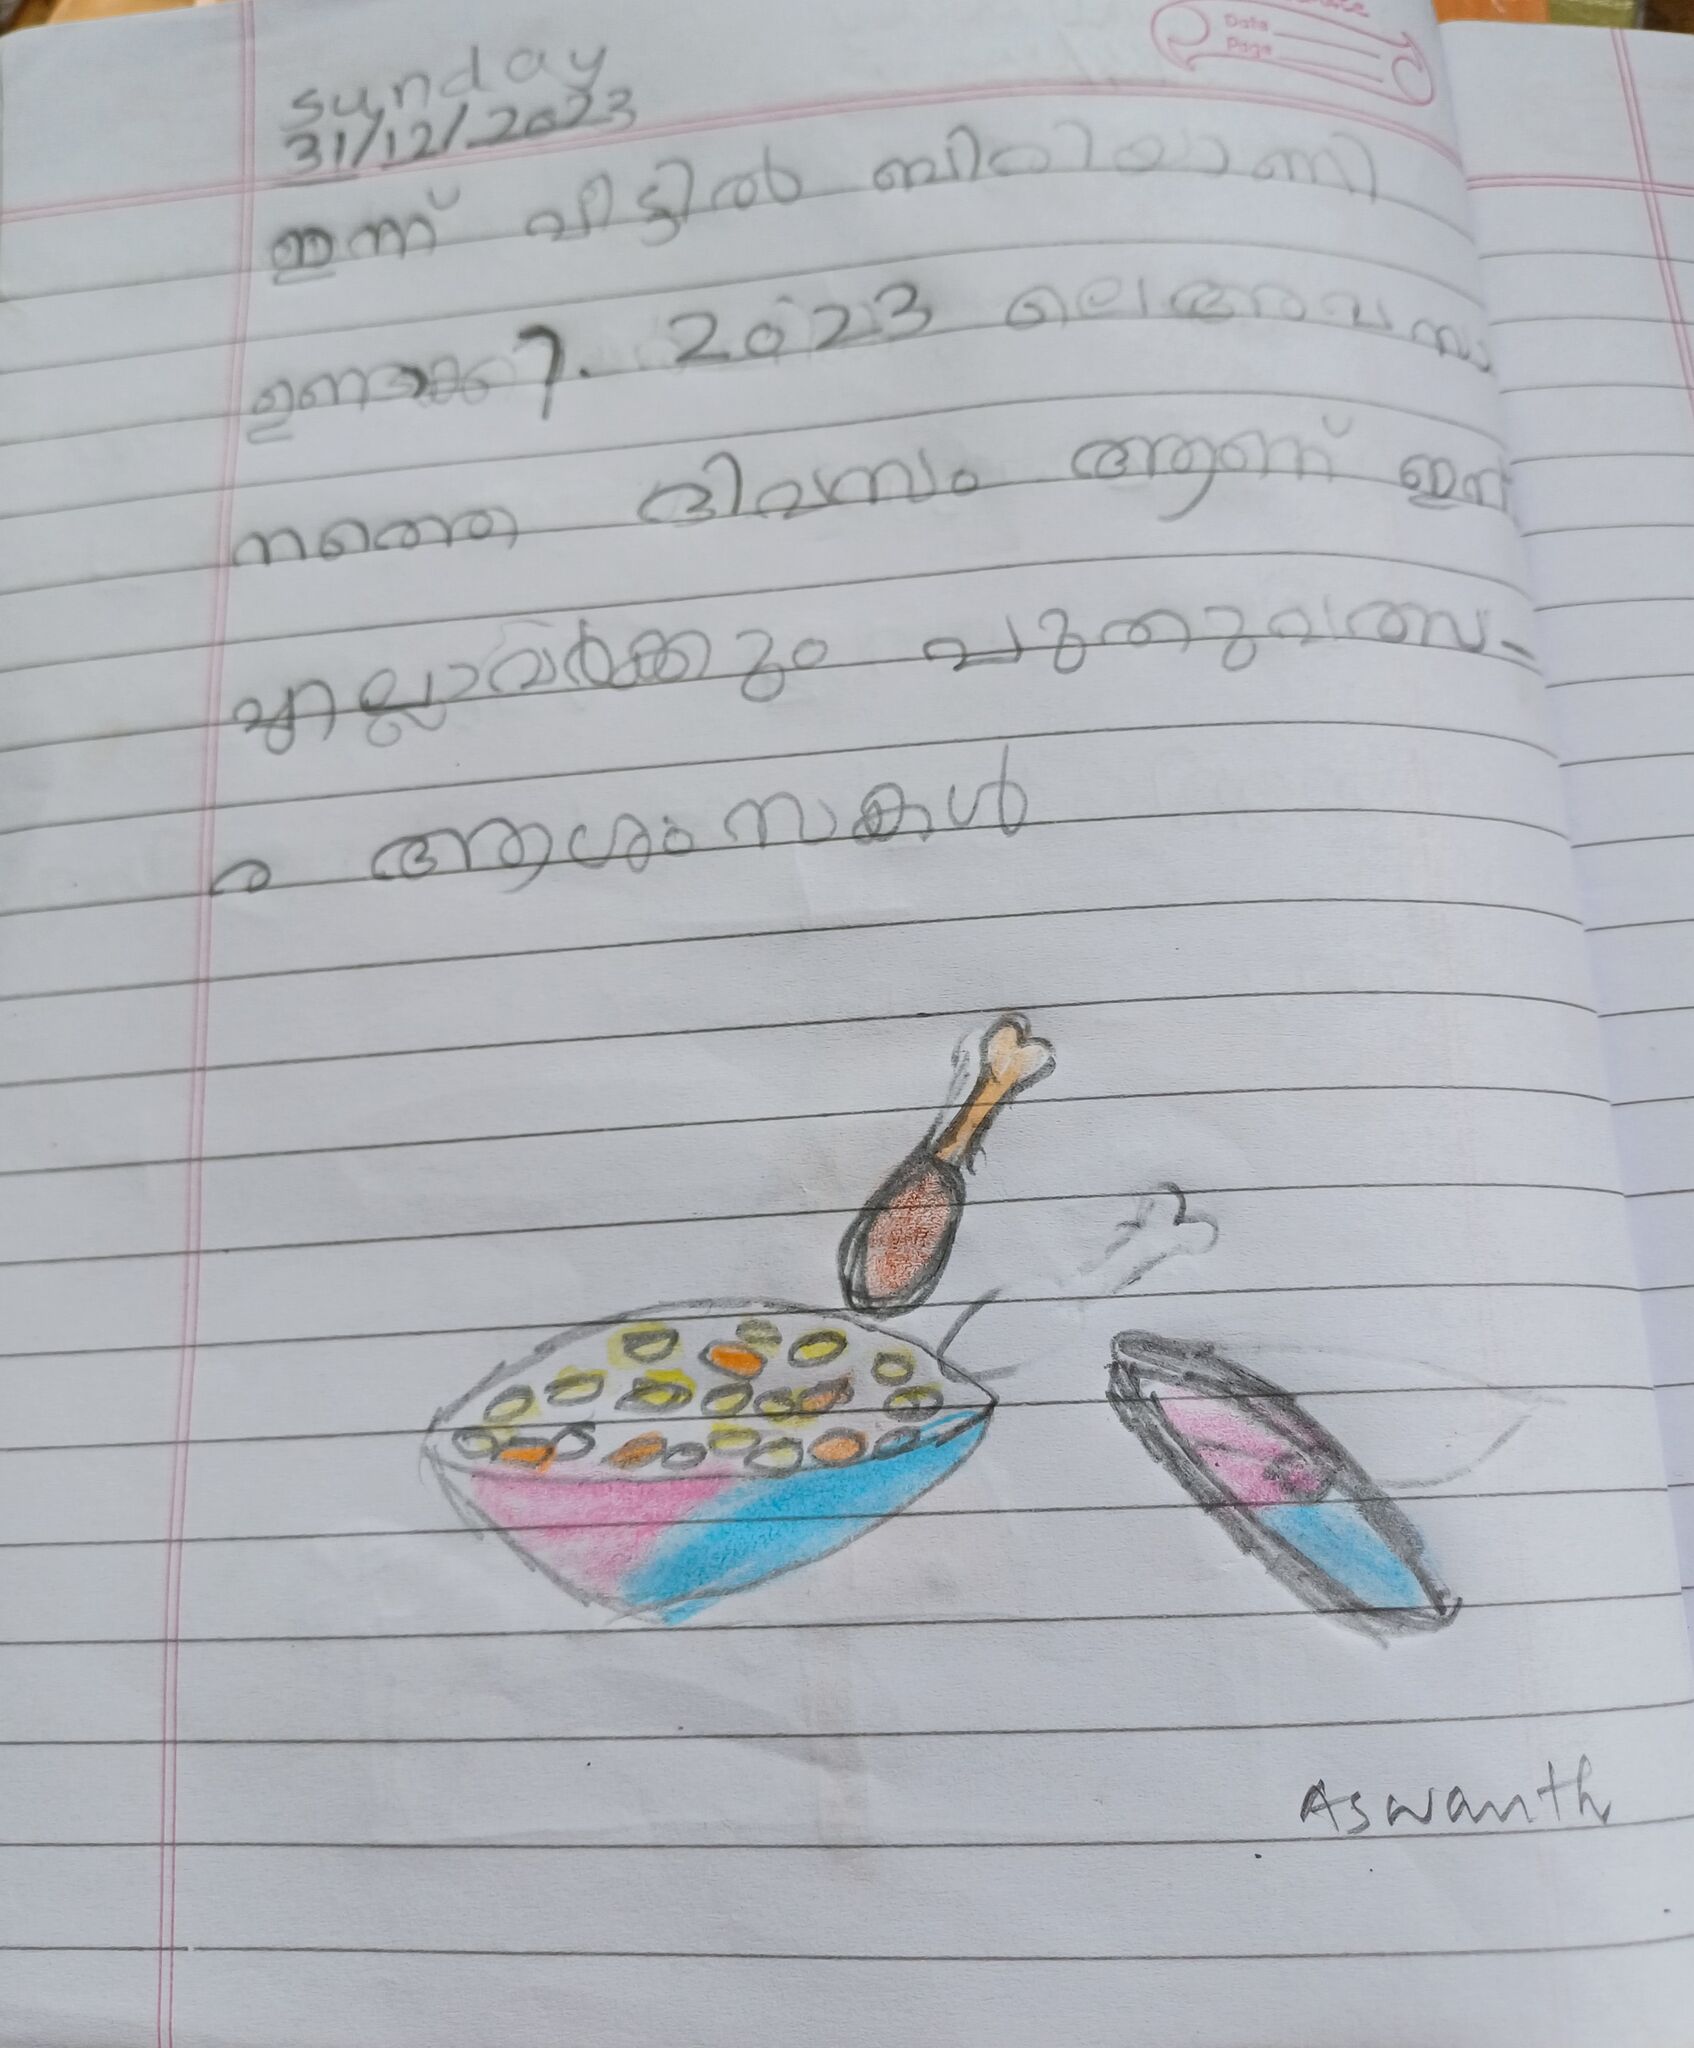 Date
Page
sunday
31/12/2023
ഇന്ന് വീട്ടിൽ ബിരിയാണി
ഉണ്ടാക്കി. 2023 ലെ അവസാ
നത്തെ ദിവസം ആണ് ഇന്ന്
എല്ലാവർക്കും പുതുവത്സ-
ര ആശംസകൾ
Aswanth